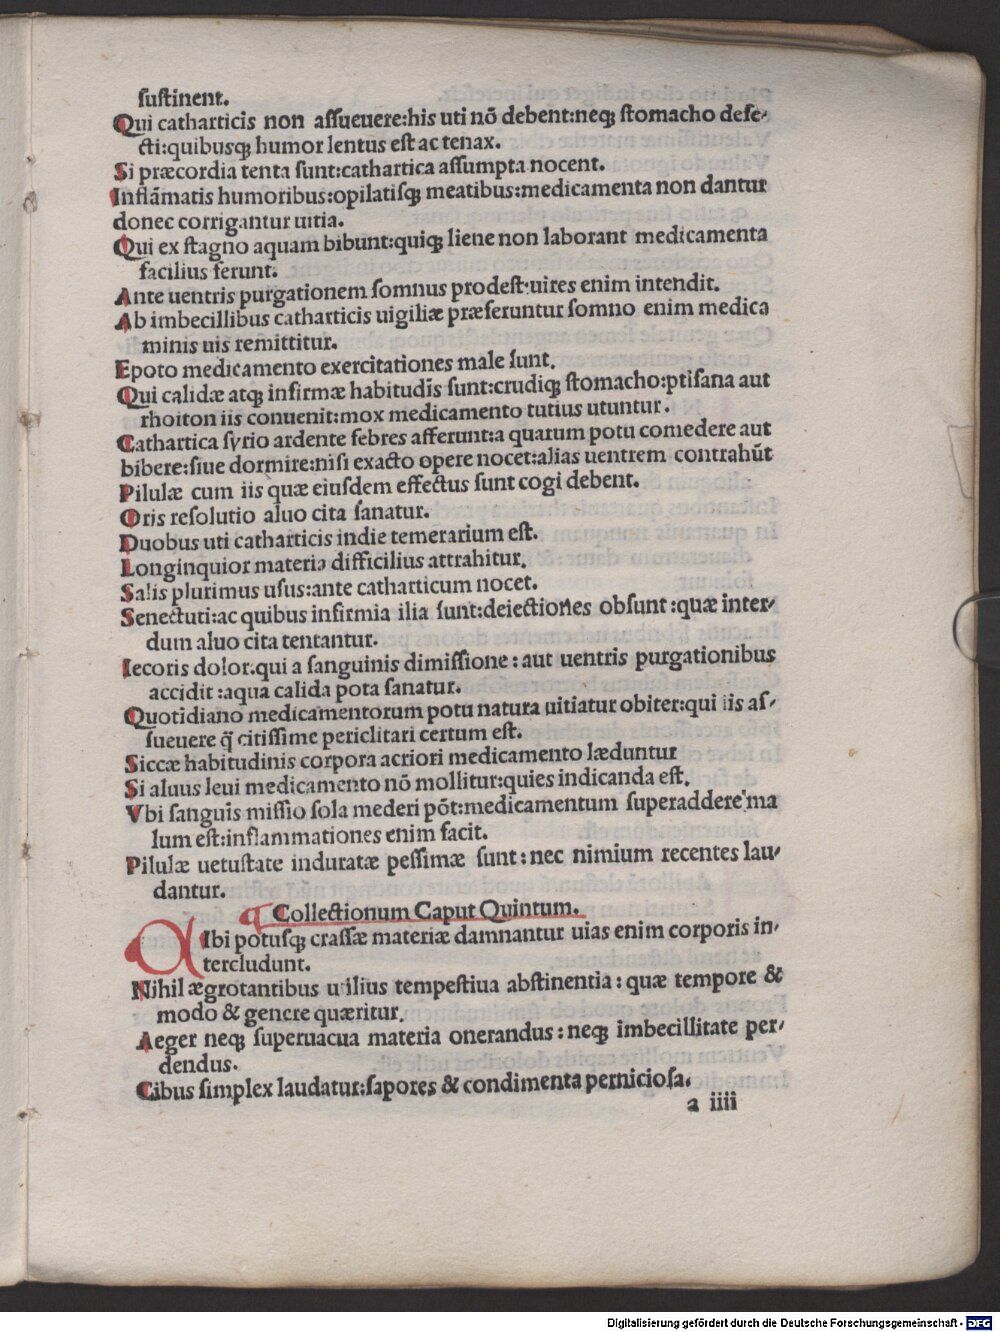 ſuſtinent.
Qui catharticis non aſſueuere:his uti nō debent:neqꝫ ſtomacho defe-
cti:quibusqꝫ humor lentus eſt ac tenax.
Si præcordia tenta ſunt:cathartica aſſumpta nocent.
Inflāmatis humoribus:opilatiſqꝫ meatibus:medicamenta non dantur
donec corrigantur uitia.
Qui ex ſtagno aquam bibunt:quiqꝫ liene non laborant medicamenta
facilius ferunt.
Ante uentris purgationem ſomnus prodeſt:uires enim intendit.
Ab imbecillibus catharticis uigiliæ præferuntur ſomno enim medica
minis uis remittitur.
Epoto medicamento exercitationes male ſunt.
Qui calidæ atqꝫ infirmæ habitudīs ſunt:crudiqꝫ ſtomacho:ptiſana aut
rhoiton iis conuenit:mox medicamento tutius utuntur.
Cathartica ſyrio ardente febres afferunt:a quarum potu comedere aut
bibere:ſiue dormire:niſi exacto opere nocet:alias uentrem contrahūt
Pilulæ cum iis quæ eiuſdem effectus ſunt cogi debent.
Oris reſolutio aluo cita ſanatur.
Duobus uti catharticis indie temerarium eſt.
Longinquior materia difficilius attrahitur.
Salis plurimus uſus:ante catharticum nocet.
Senectuti:ac quibus infirmia ilia ſunt:deiectiones obſunt:quæ inter-
dum aluo cita tentantur.
Iecoris dolor.qui a ſanguinis dimiſſione: aut uentris purgationibus
accidit:aqua calida pota ſanatur.
Quotidiano medicamentorum potu natura uitiatur obiter:qui iis aſ-
ſueuere q̄ citiſſime periclitari certum eſt.
Siccæ habitudinis corpora acriori medicamento læduntur
Si aluus leui medicamento nō mollitur:quies indicanda eſt.
Vbi ſanguīs miſſio ſola mederi pōt:medicamentum ſuperaddere ma
lum eſt:inflammationes enim facit.
Pilulæ uetuſtate induratæ peſſimæ ſunt: nec nimium recentes lau-
dantur.
¶ Collectionum Caput Quintum.
CIbi potuſqꝫ craſſæ materiæ damnantur uias enim corporis in-
tercludunt.
Nihil ægrotantibus utilius tempeſtiua abſtinentia: quæ tempore &
modo & genere quæritur.
Aeger neqꝫ ſuperuacua materia onerandus: neqꝫ imbecillitate per-
dendus.
Cibus ſimplex laudatur:ſapores & condimenta pernicioſa.
a iiii
Digitalisierung gefördert durch die Deutsche Forschungsgemeinschaft - DFG